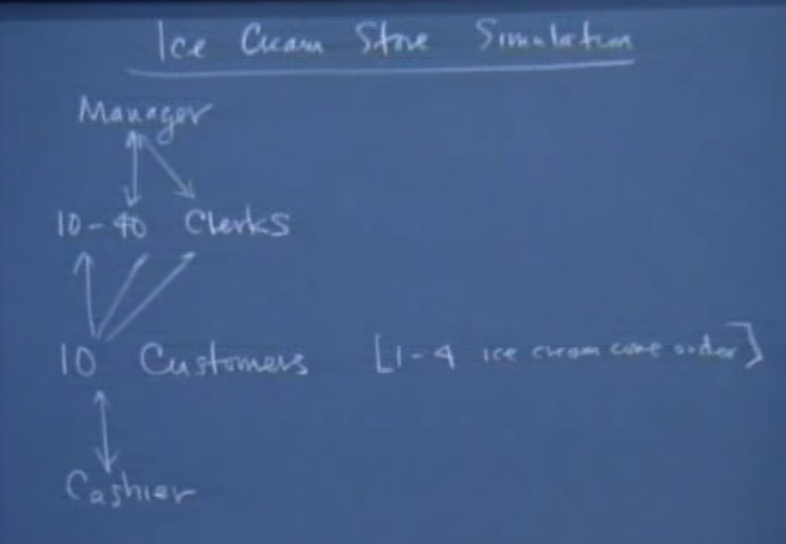 Ice Cream Store Simulation
Manager
10-40 Clerks
10 Customers [1-4 ice cream cone order]
Cashier